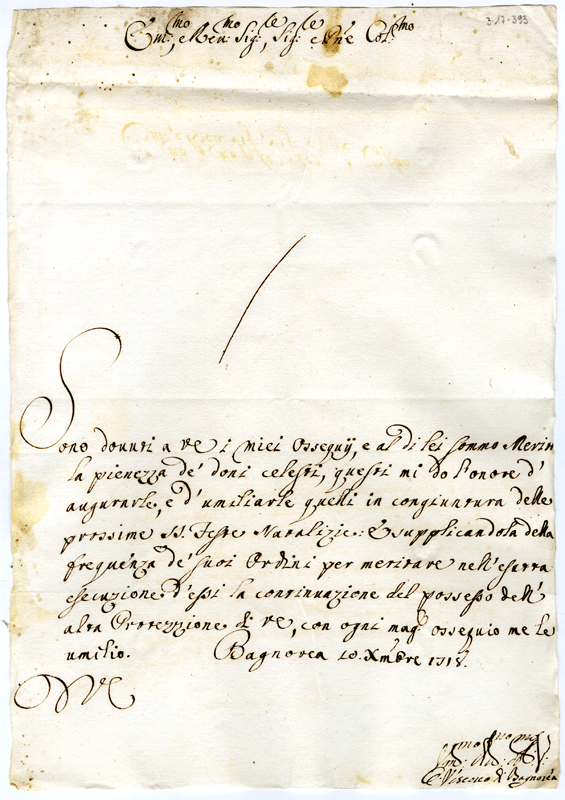 3-17-393
Em:mo, e Reu:mo Sig:re, Sig:re e Pne Col:mo
Sono douuti a VE i miei Ossequij, e al di lei sommo Merito
la pienezza de' doni celesti, questi mi do l'onore d'
augurarle, e d'umiliarle quelli in congiuntura delle
prossime SS. Feste Natalizie: E supplicandola della
frequenza de' suoi Ordini per meritare nell'esatta
esecuzione d'essi la continuazione del possesso dell'
alta Protezzione di VE, con ogni mag:r ossequio me le
umilio. Bagnorea 10. Xmbre 1718.
VE
C. Vescouo di Bagnorea